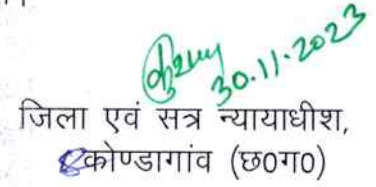 30.11.2023
जिला एवं सत्र न्यायाधीश,
कोण्डागांव (छ0ग0)